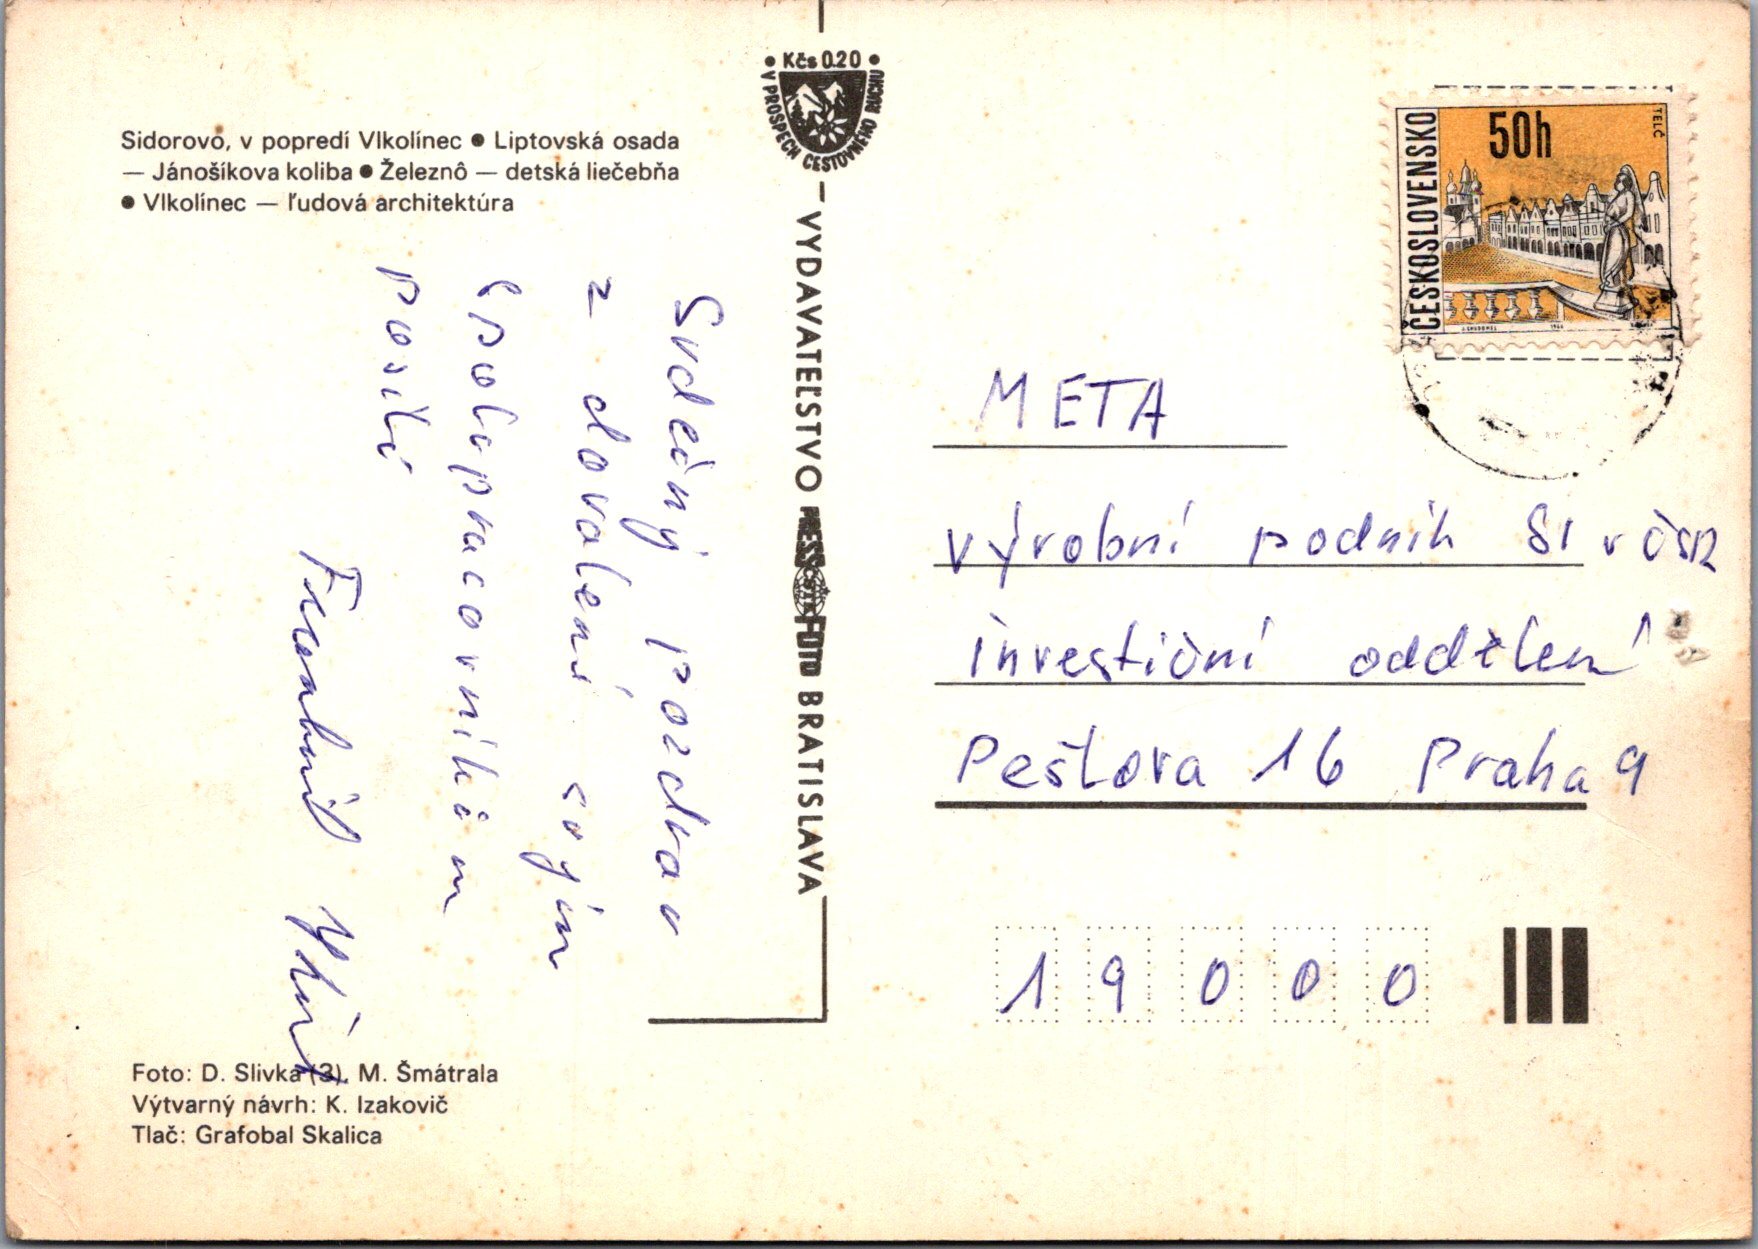 Kčs 0.20
V PROSPECH CESTOVNÉHO RUCHU
Sidorovo, v popredí Vlkolínec ● Liptovská osada
— Jánošíkova koliba ● Železnô — detská liečebňa
● Vlkolínec — ľudová architektúra
Srdečný pozdrav
z dovolené svým
spolupracovníkům
posílá
VYDAVATEĽSTVO PRESSFOTO BRATISLAVA
ČESKOSLOVENSKO
50h
TELČ
META
výrobní podnik SI v ČSR
investiční oddělení
Pešlova 16 Praha 9
19000
Foto: D. Slivka (3), M. Šmátrala
Výtvarný návrh: K. Izakovič
Tlač: Grafobal Skalica